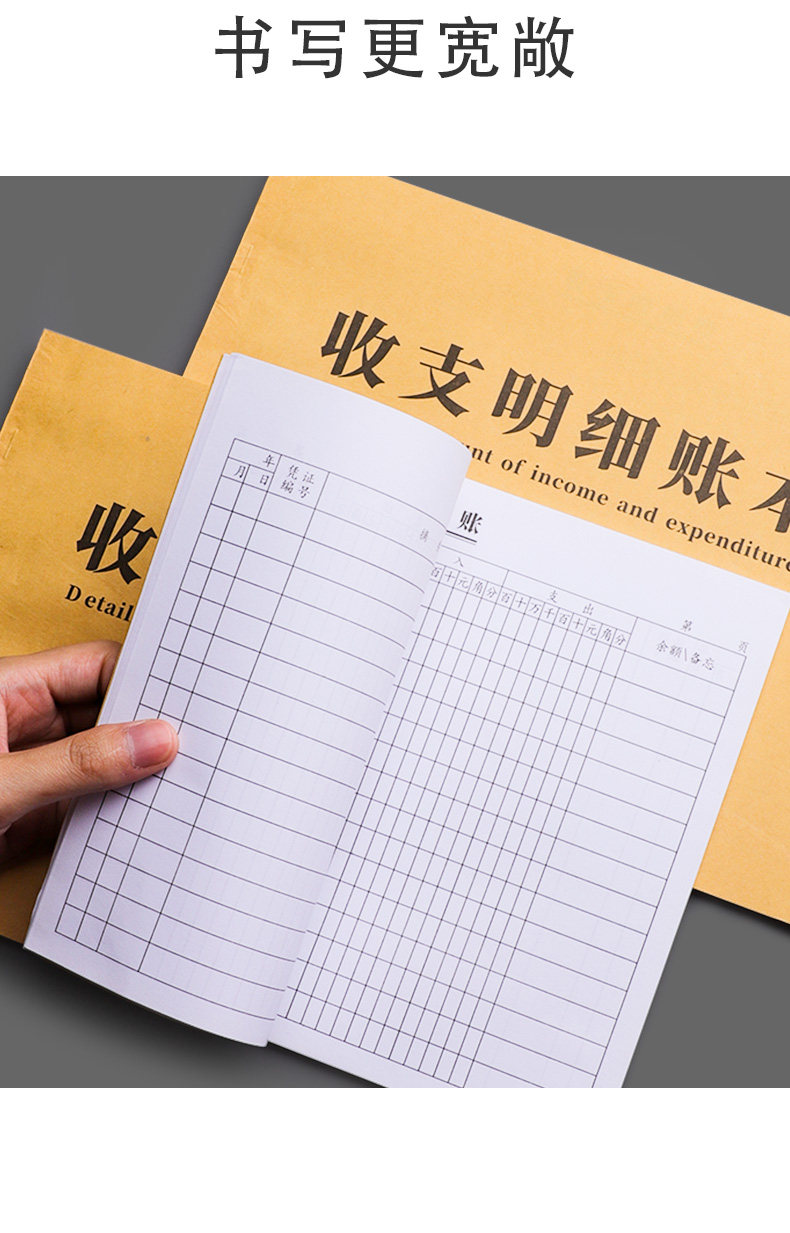 书写更宽敞
收支明细账本
unt of income and expenditure
收
Detail
年
凭证
月 日 编号
摘
账
入 支出
百十元角分 百十万千百十元角分
第 页
余额\备忘